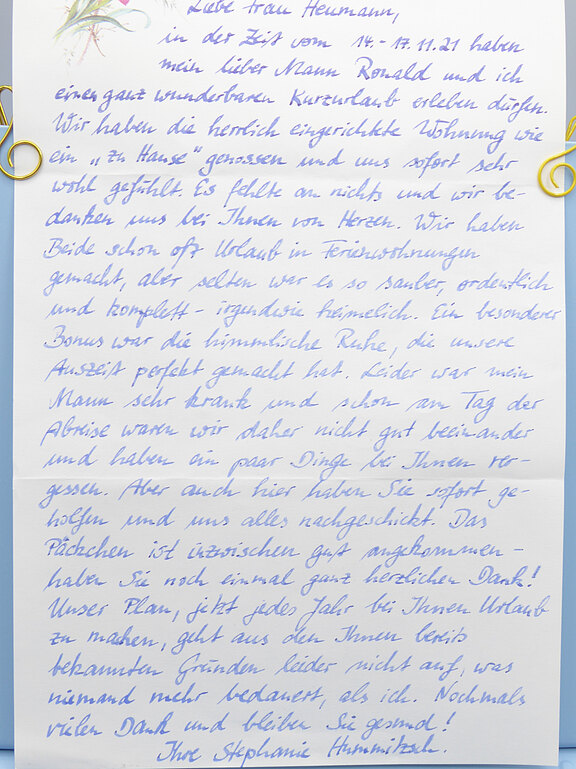 Liebe Frau Heumann,
in der Zeit vom 14.-17.11.21 haben
mein lieber Mann Ronald und ich
einen ganz wunderbaren Kurzurlaub erleben dürfen.
Wir haben die herrlich eingerichtete Wohnung wie
ein „zu Hause" genossen und uns sofort sehr
wohl gefühlt. Es fehlte an nichts und wir be-
danken uns bei Ihnen von Herzen. Wir haben
Beide schon oft Urlaub in Ferienwohnungen
gemacht, aber selten war es so sauber, ordentlich
und komplett - irgendwie heimelich. Ein besonderer
Bonus war die himmlische Ruhe, die unsere
Auszeit perfekt gemacht hat. Leider war mein
Mann sehr krank und schon am Tag der
Abreise waren wir daher nicht gut beeinander
und haben ein paar Dinge bei Ihnen ver-
gessen. Aber auch hier haben Sie sofort ge-
holfen und uns alles nachgeschickt. Das
Päckchen ist inzwischen gut angekommen -
haben Sie noch einmal ganz herzlichen Dank!
Unser Plan, jetzt jedes Jahr bei Ihnen Urlaub
zu machen, geht aus den Ihnen bereits
bekannten Gründen leider nicht auf, was
niemand mehr bedauert, als ich. Nochmals
vielen Dank und bleiben Sie gesund!
Ihre Stephanie Hummitzsch.